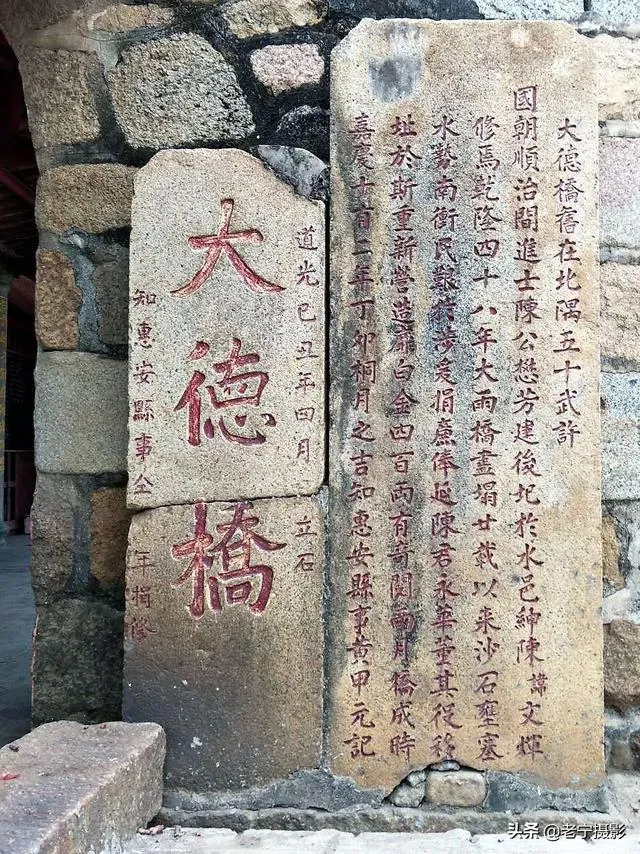 大德橋舊在北隅五十武許
國朝順治間進士陳公懋芳建後圮於水邑紳陳諱文煇
修焉乾隆四十八年大雨橋盡塌廿載以來沙石壅塞
水勢南衝民艱徒涉爰捐廉俸延陳君永華董其役移
址於斯重新營造靡白金四百兩有奇閱兩月橋成時
嘉慶十有二年丁卯桐月之吉知惠安縣事黃甲元記
道光己丑年四月 立石
大德橋
知惠安縣事仝 捐修
头条@老宁摄影